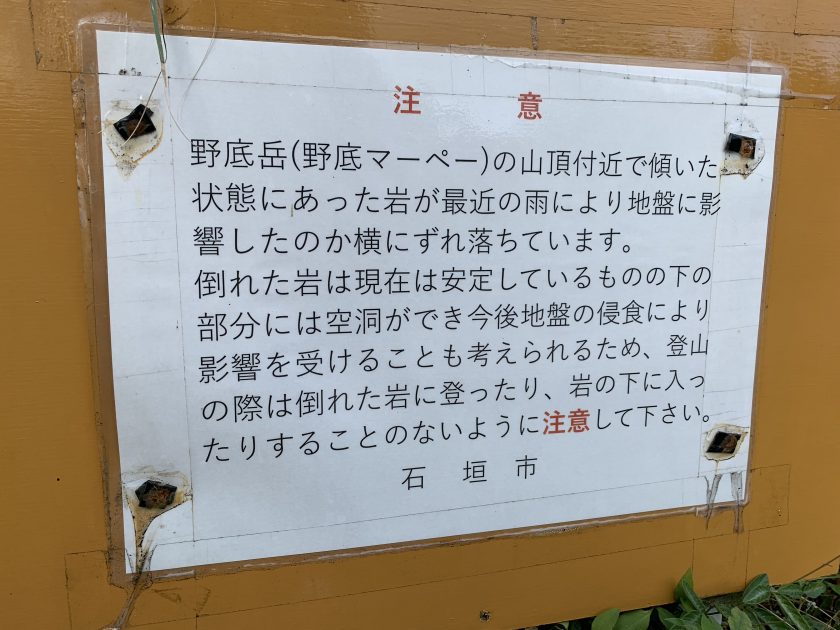 注 意
野底岳(野底マーペー)の山頂付近で傾いた
状態にあった岩が最近の雨により地盤に影
響したのか横にずれ落ちています。
倒れた岩は現在は安定しているものの下の
部分には空洞ができ今後地盤の侵食により
影響を受けることも考えられるため、登山
の際は倒れた岩に登ったり、岩の下に入っ
たりすることのないように注意して下さい。
石 垣 市